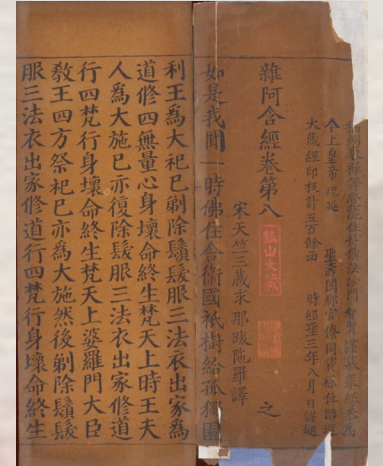 州東禪等覺院住持傳法沙門智賢謹募衆緣恭爲
今上皇帝祝延 聖壽國郡官僚同資禄位雕造
大藏經印板計五百餘函 時紹聖三年八月日謹題
雜阿含經卷第八 之
鼓山大藏
宋天竺三藏求那跋陁羅譯
如是我聞一時佛住舍衛國祇樹給孤獨園
利王爲大祀已剃除鬚髮服三法衣出家爲
道修四無量心身壞命終生梵天上時王夫
人爲大施已亦復除髮服三法衣出家修道
行四梵行身壞命終生梵天上婆羅門大臣
教王四方祭祀已亦爲大施然後剃除鬚髮
服三法衣出家修道行四梵行身壞命終生